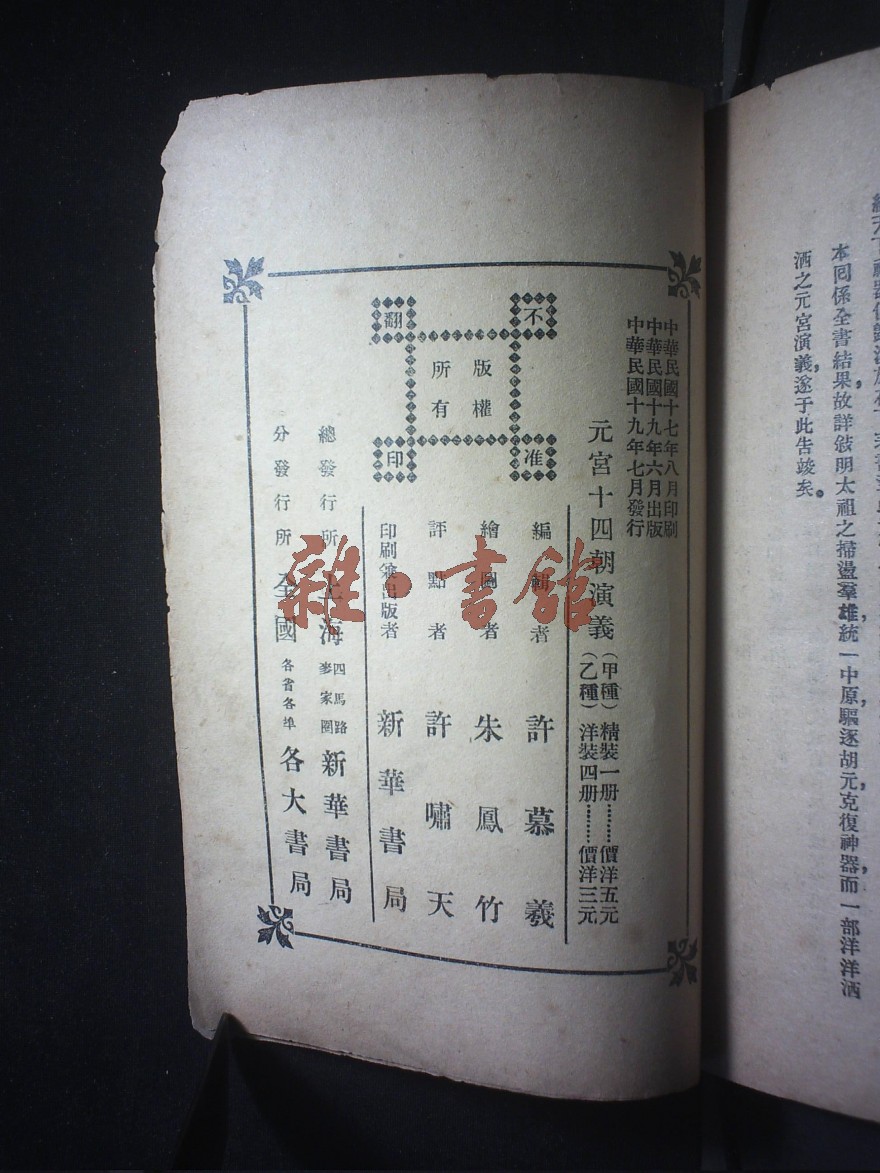 本回係全書結果,故詳敍明太祖之掃盪羣雄,統一中原,驅逐胡元,克復神器,而一部洋洋洒
洒之元宮演義,遂于此告竣矣。
中華民國十七年八月印刷
中華民國十九年六月出版
中華民國十九年七月發行
元宮十四朝演義
(甲種)精裝一册………價洋五元
(乙種)洋裝四册………價洋三元
不准
翻印
版權
所有
編輯者 許慕羲
繪圖者 朱鳳竹
評點者 許嘯天
印刷兼出版者 新華書局
總發行所 上海 四馬路 麥家圈 新華書局
分發行所 全國 各省各埠 各大書局
雜·書館